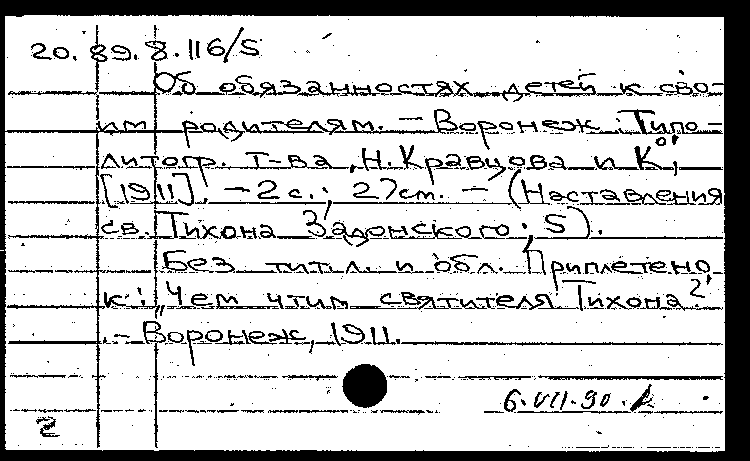 20.89.8.116/5
Об обязанностях детей к сво-
им родителям. – Воронеж: Типо-
литогр. Т-ва „Н. Кравцова и К°",
[1911]. – 2 с.; 27 см. – (Наставления
св. Тихона Задонского; 5).
Без тит. л. и обл. Приплетено
к: „Чем чтим святителя Тихона?"
. – Воронеж, 1911.
6.VII.90.
2